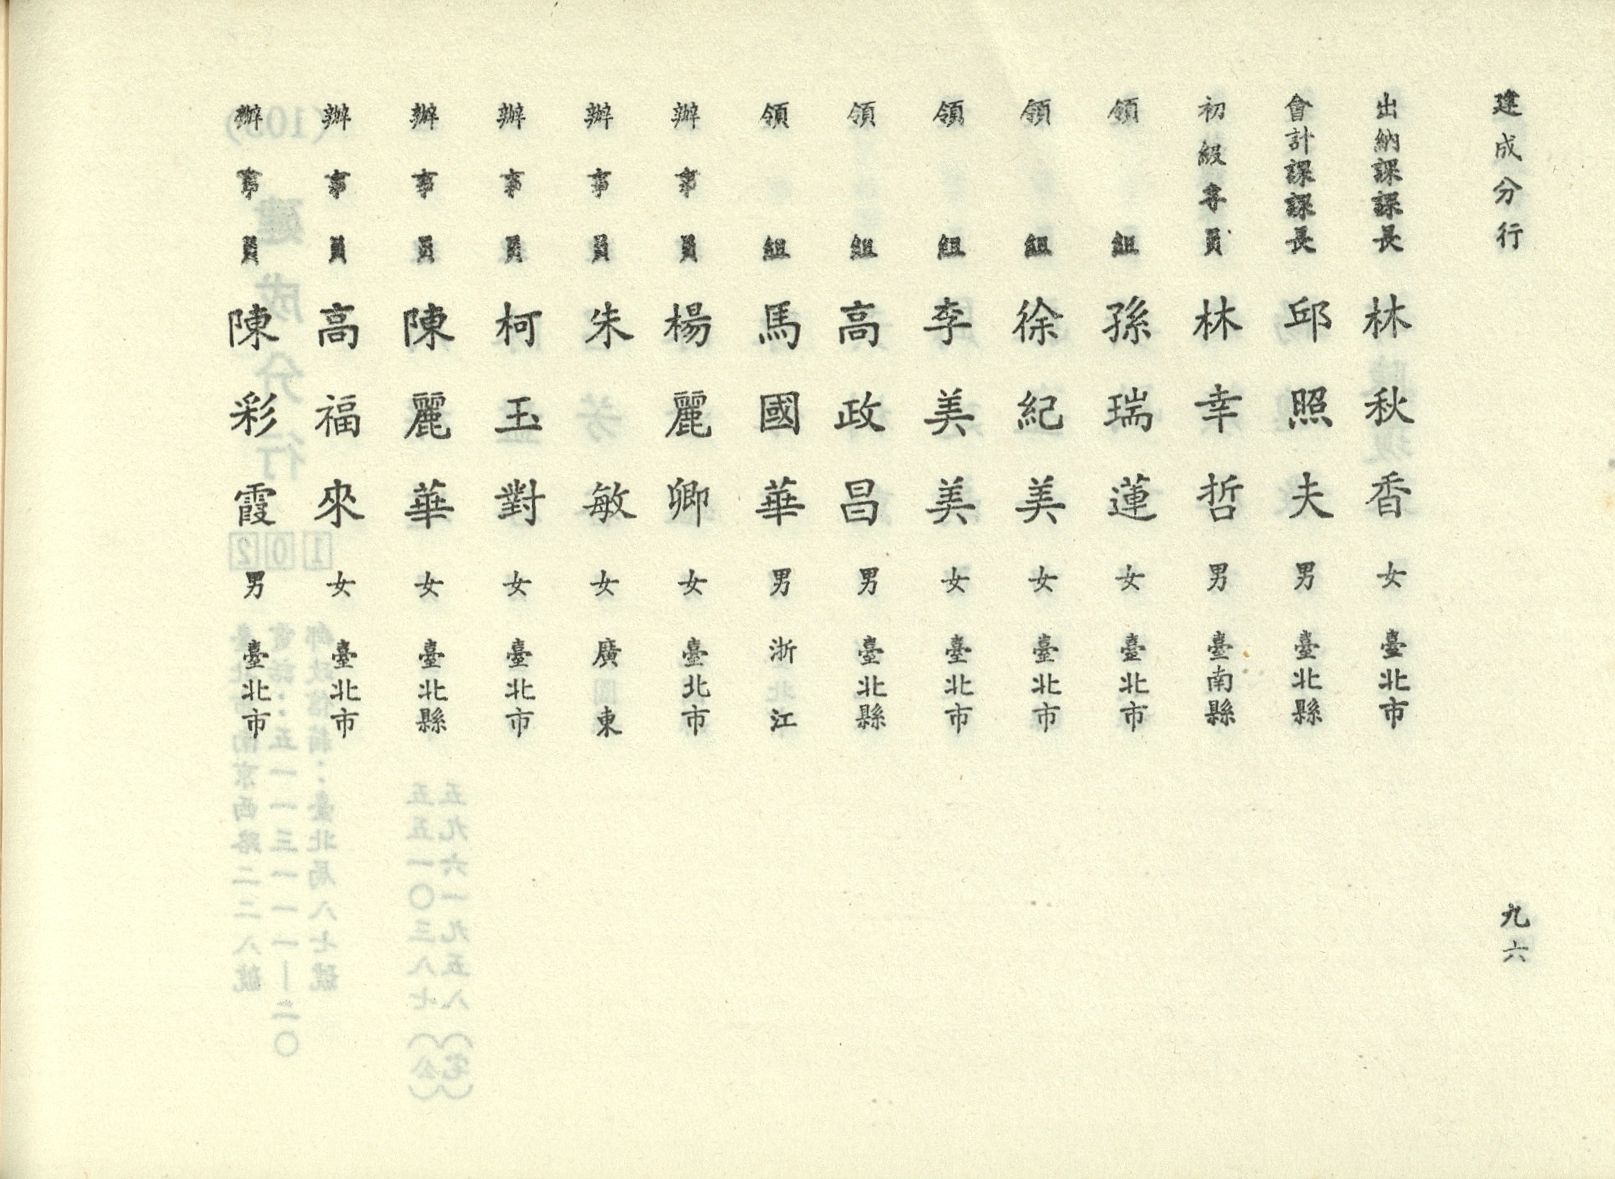 建成分行
出納課課長 林秋香 女 臺北市
會計課課長 邱照夫 男 臺北縣
初級專員 林幸哲 男 臺南縣
領組 孫瑞蓮 女 臺北市
領組 徐紀美 女 臺北市
領組 李美美 女 臺北市
領組 高政昌 男 臺北縣
領組 馬國華 男 浙江
辦事員 楊麗卿 女 臺北市
辦事員 朱敏 女 廣東
辦事員 柯玉對 女 臺北市
辦事員 陳麗華 女 臺北縣
辦事員 高福來 女 臺北市
辦事員 陳彩霞 男 臺北市
九六